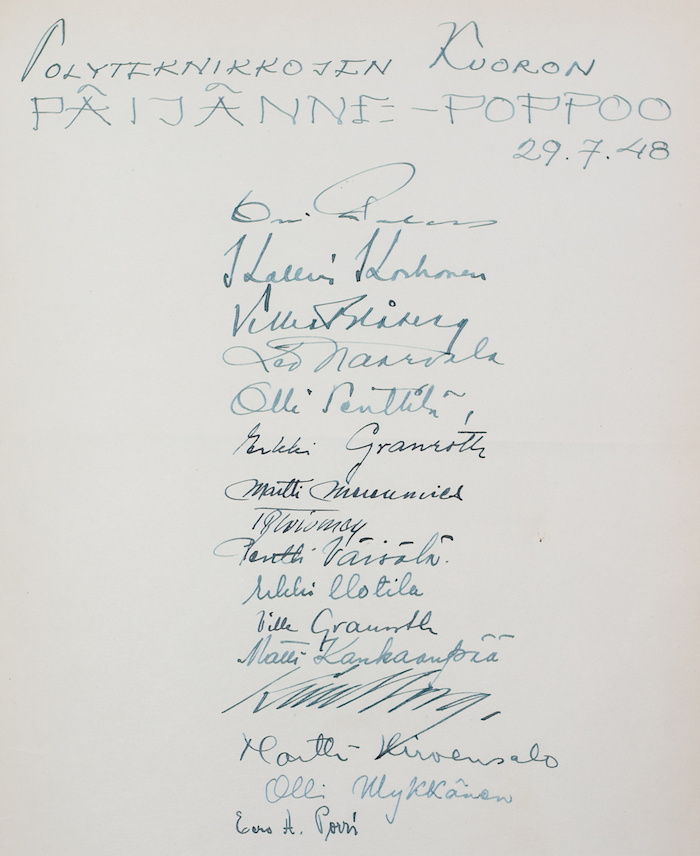 POLYTEKNIKKOJEN KUORON
PÄIJÄNNE-POPPOO
29.7.48
Kallevi Korhonen
Ville Blåberg
Leo Naarvala
Olli Penttilä,
Erkki Granroth
Martti
Pentti Väisälä.
Erkki Uotila
Ville Granroth
Matti Kankaanpää
Martti Hirvensalo
Olli Mykkänen
Eero A. Porri